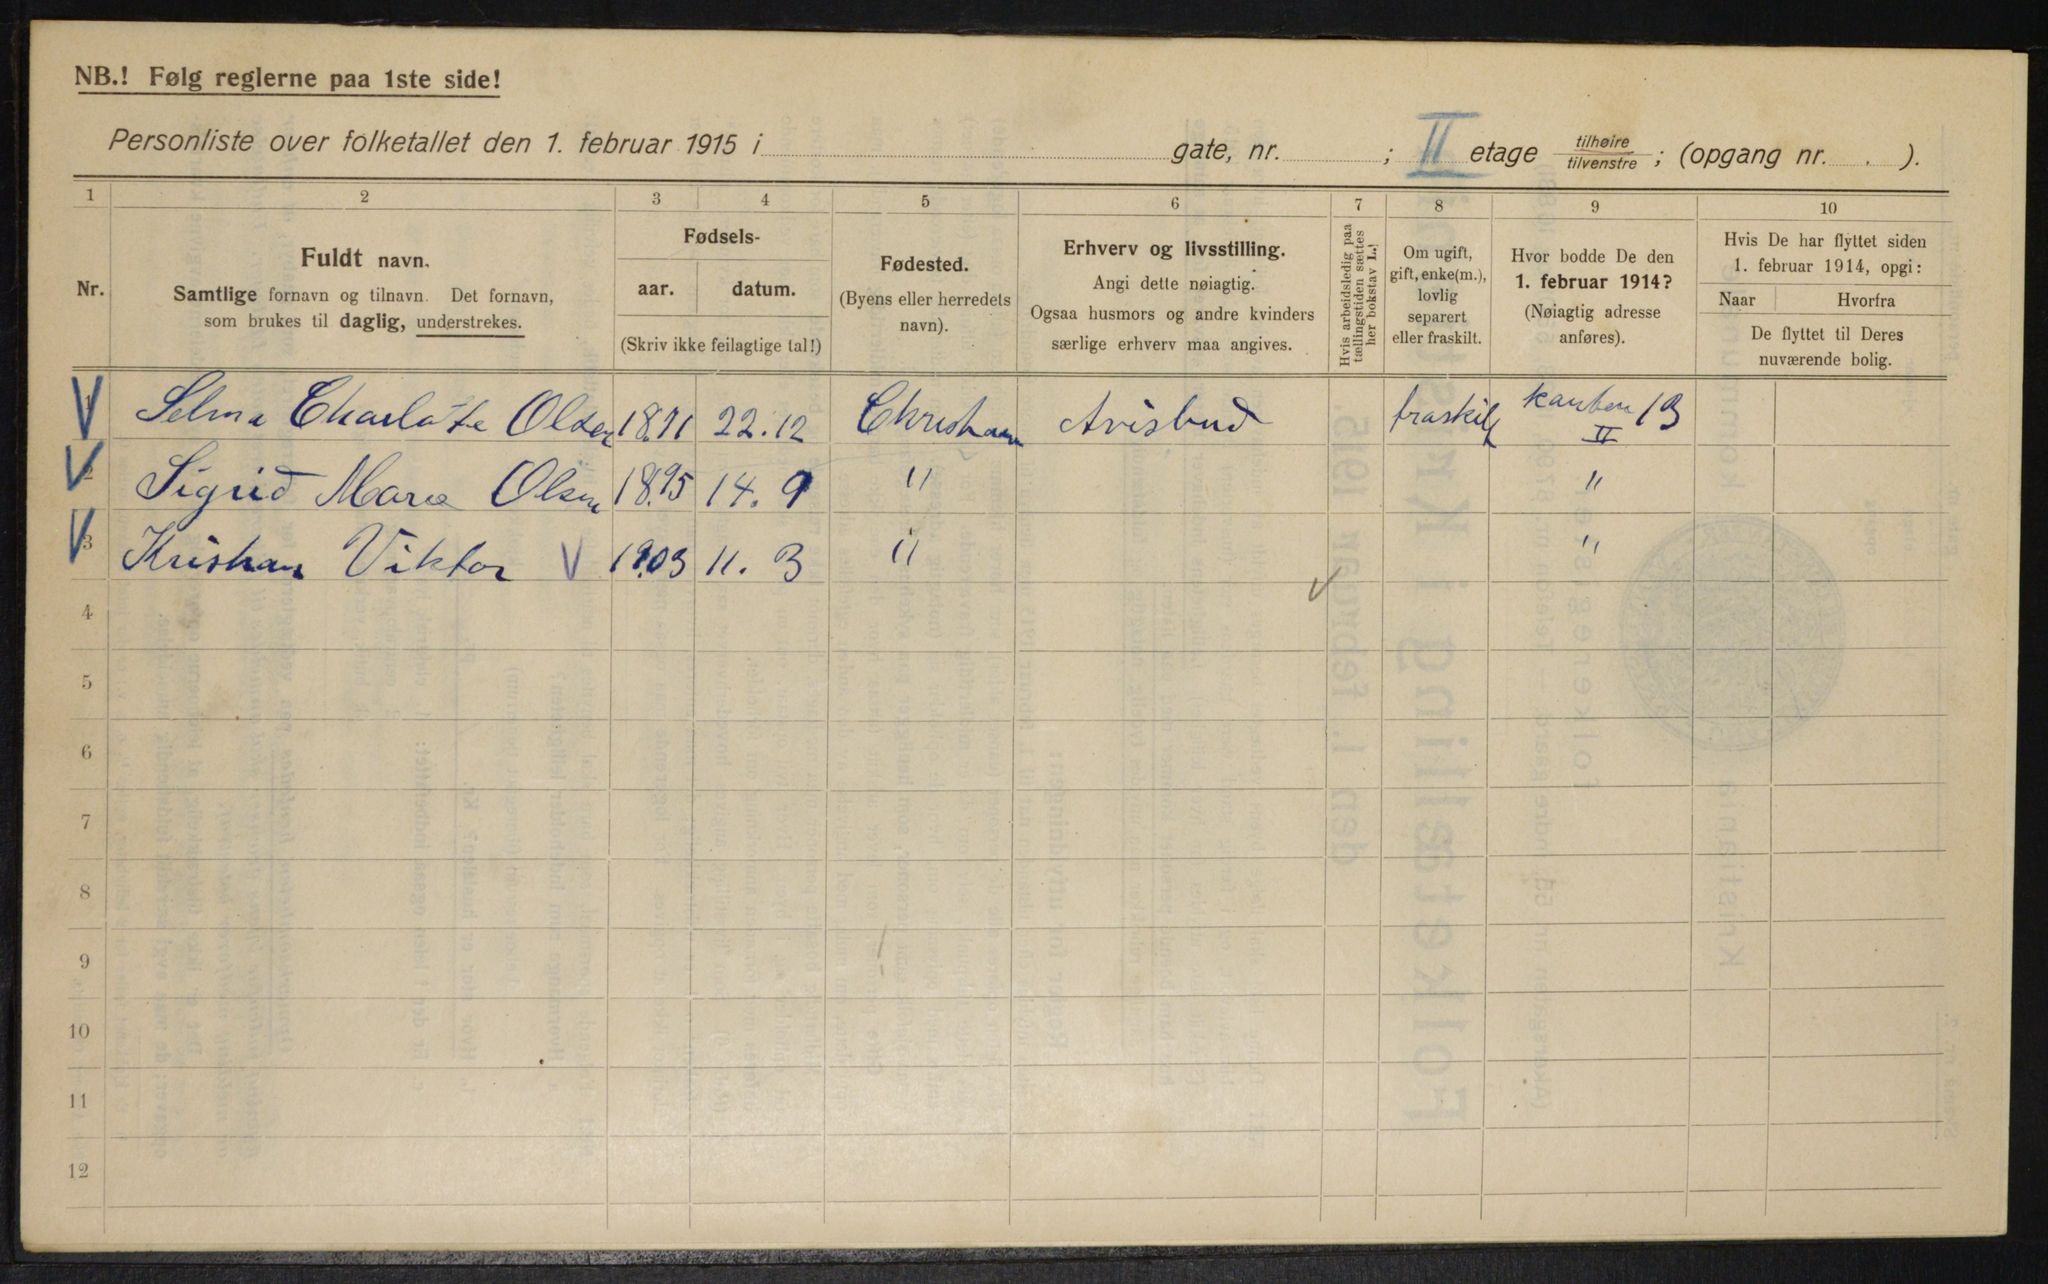 NB.! Følg reglerne paa 1ste side!
Personliste over folketallet den 1. februar 1915 i gate, nr. ; II etage tilhøire/tilvenstre ; (opgang nr. ).
1 2 3 4 5 6 7 8 9 10
Nr.
Fuldt navn.
Samtlige fornavn og tilnavn. Det fornavn,
som brukes til daglig, understrekes.
Fødsels-
aar. datum.
(Skriv ikke feilagtige tal!)
Fødested.
(Byens eller herredets
navn).
Erhverv og livsstilling.
Angi dette nøiagtig.
Ogsaa husmors og andre kvinders
særlige erhverv maa angives.
Hvis arbeidsledig paa
tællingstiden sættes
her bokstav L.!
Om ugift,
gift, enke(m.),
lovlig
separert
eller fraskilt.
Hvor bodde De den
1. februar 1914?
(Nøiagtig adresse
anføres).
Hvis De har flyttet siden
1. februar 1914, opgi:
Naar Hvorfra
De flyttet til Deres
nuværende bolig.
1 Selma Charlotte Olsen 1871 22.12 Christiania Avisbud fraskilt 13
II
2 Sigrid Marie Olsen 1895 14. 9 " "
3 Kristian Viktor V 1903 11. 3 " "
4
5
6
7
8
9
10
11
12